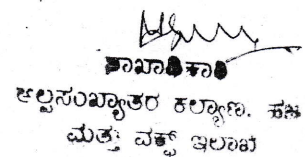 ಶಾಖಾಧಿಕಾರಿ
ಅಲ್ಪಸಂಖ್ಯಾತರ ಕಲ್ಯಾಣ. ಹಜ
ಮತ್ತು ವಕ್ಫ್ ಇಲಾಖೆ